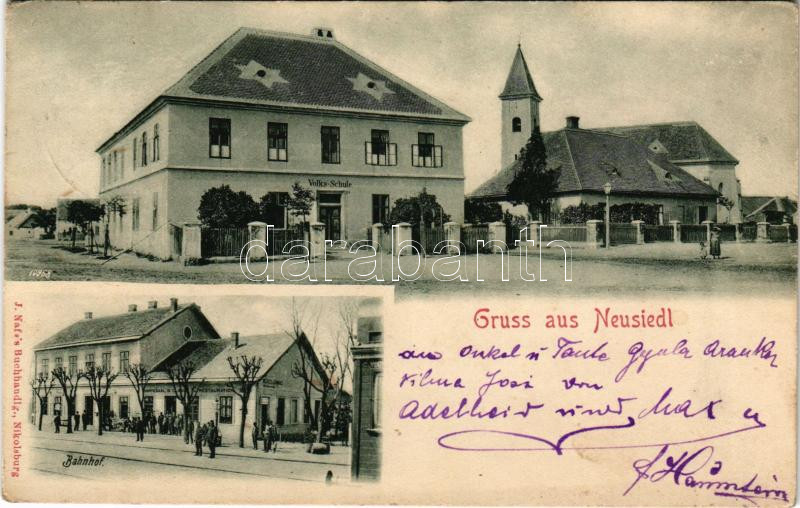 Volks-Schule
10858
darabanth
Gruss aus Neusiedl
an Onkel u Tante Gyula Aranka
Vilma Josi von
Adelheid und Max
Bahnhof.
J. Nafe's Buchhandlg., Nikolsburg